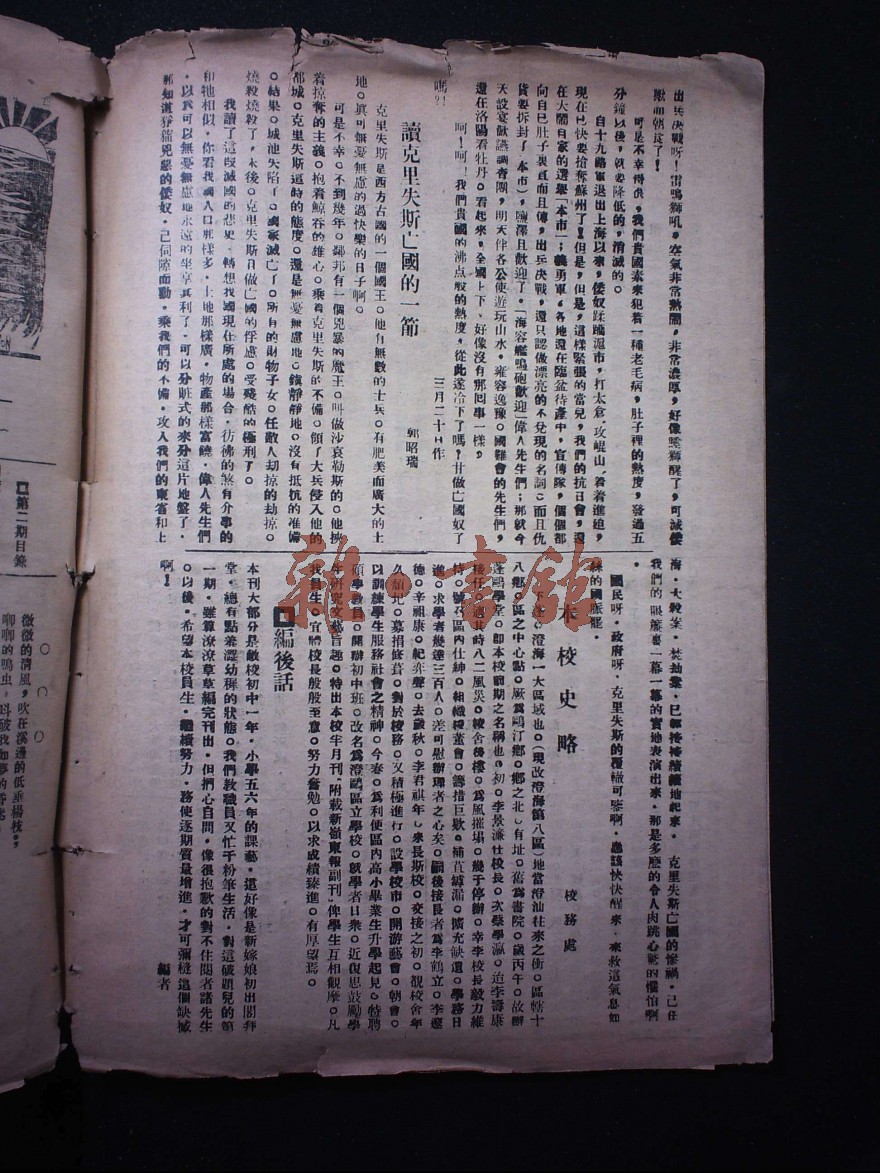 出兵決戰呀!雷鳴獅吼,空氣非常熱鬧,非常濃厚,好像睡獅醒了,可滅倭
可是不幸得很,我們貴國素來犯着一種老毛病,肚子裡的熱度,發過五
分鐘以後,就要降低的,消滅的。
自十九路軍退出上海以來,倭奴蹂躪滬市,打太倉,攻崐山,着着進迫,
現在已快要搶奪蘇州了!但是,但是,這樣緊張的當兒,我們的抗日會,還
在大鬧自家的選舉「本市」;義勇軍,各地還在臨盆待產中,宣傳隊,個個都
向自己肚子裏宣而且傳,出兵決戰,還只認做漂亮的不兌現的名詞;而且仇
貨要拆封了「本市」,鹽澤且歡迎了,「海容艦鳴砲歡迎」偉人先生們;那就今
天設宴歡讌調查團,明天伴各公使遊玩山水,雍容逸豫。國難會的先生們,
還在洛陽看牡丹。看起來,全國上下、好像沒有那囘事一樣,
呵!呵!我們貴國的沸点般的熱度,從此遂冷下了嗎?甘做亡國奴了
嗎?!
三月二十日作
讀克里失斯亡國的一節
郭昭瑞
克里失斯是西方古國的一個國王。他有無數的士兵。有肥美而廣大的土
地。真可無憂無慮的過快樂的日子啊。
可是不幸。不到幾年。鄰邦有一個兇暴的魔王。叫做沙哀勒斯的。他挾
着掠奪的主義。抱着鯨吞的雄心。乘着克里失斯的不備。領了大兵侵入他的
都城。克里失斯這時的態度。還是無憂無慮地。鎮靜靜地。沒有抵抗的准備
。結果。城池失陷了。國家滅亡了。所有的財物子女。任敵人刧掠的刧掠。
燒殺燒殺了,末後。克里失斯且做亡國的俘虜。受殘酷的極刑了。
我讀了這段滅國的悲史。轉想我國現在所處的塲合。彷彿的煞有介事的
和牠相似。你看我國人口那樣多。土地那樣廣。物產那樣富饒。偉人先生們
。以爲可以無憂無慮地永遠的坐享其利了。可以分賍式的來分這片地盤了。
那知道狰獰兇惡的倭奴。已伺隙而動。乘我們的不備。攻入我們的東省和上
海。大殺案。焚刧案。已經接接續續地起來。克里失斯亡國的慘禍。已在
我們的眼簾裏一幕一幕的實地表演出來。那是多麽的令人肉跳心驚的懼怕啊
國民呀。政府呀。克里失斯的覆轍可鑒啊。應該快快醒來。來救這氣息如
絲的國脈罷。
本校史略
校務處
澄海一大區域也。(現改澄海第八區)地當澄汕往來之衝。區轄十
八鄉。區之中心點。厥爲鷗汀鄉。鄉之北。有址。舊爲書院。歲丙午。故辦
蓬鷗學堂。卽本校前期之名稱也。初。李景濂仕校長。次蔡學瀛。迨李壽康
接任。適其時八二風災。校舍後樓。爲風摧塌。幾于停辦。幸李校長毅力維
持。號召區內仕紳。組織校董會。籌措巨欵。補苴罅漏。擴充缺遺。學務日
進。求學者幾達三百人。差可慰辦理者之心矣。嗣後接長者爲李鶴立。李鏖
德。辛祖康。紀弈聲。去歲秋。李君祺年。來長斯校。交接之初。覩校舍年
久頹圯。募捐修葺。對於校務。又積極進行。設學校市。開游藝會。朝會。
以訓練學生服務社會之精神。今春。爲利便區內高小畢業生升學起見。特聘
碩學敎員。開辦初中班。改名爲澄鷗區立學校。就學者日衆。近復思鼓勵學
生研究文藝旨趣。特出本校半月刊。附載新嶺東報副刊。俾學生互相觀摩。凡
我員生。宜體校長般般至意。努力奮勉。以求成績臻進。有厚望焉。
編後話
本刊大部分是敝校初中一年。小學五六年的課藝。這好像是新嫁娘初出閣拜
堂。總有點羞澀幼穉的狀態。我們敎職員又忙于粉筆生活。對這破題兒的第
一期。雖算潦潦草草編完刊出。但捫心自問。像很抱歉的對不住閱者諸先生
。以後。希望本校員生。繼續努力。務使逐期質量增進。才可彌縫這個缺憾
啊!
編者
第二期目錄
微微的清風,吹在溪邊的低垂楊枝,
雜·書館